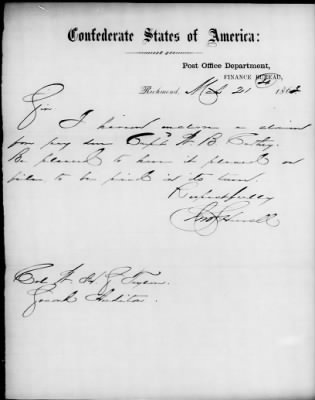 Confederate States of America:
Post Office Department,
FINANCE BUREAU,
Richmond, 21 186
Sir
I herewith enclose a claim
for pay due Capt. W B
Be pleased to have it placed on
file, to be paid in its turn.
Respectfully
Col. W. H. S. Taylor
Second Auditor